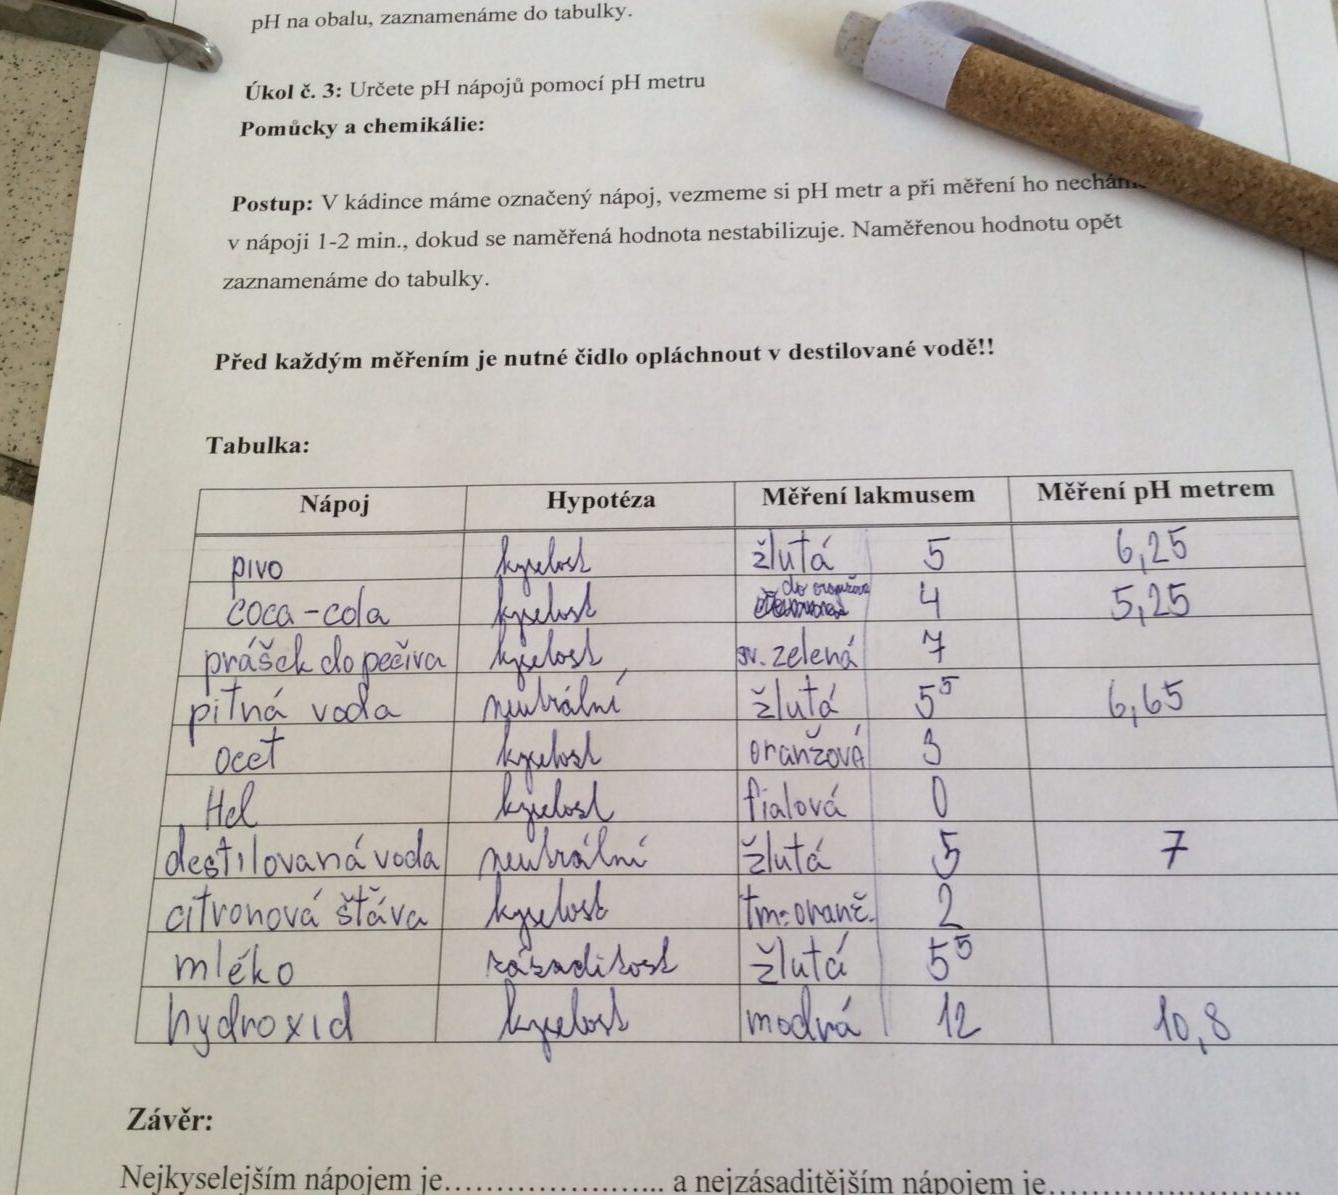 pH na obalu, zaznamenáme do tabulky.
Úkol č. 3: Určete pH nápojů pomocí pH metru
Pomůcky a chemikálie:
Postup: V kádince máme označený nápoj, vezmeme si pH metr a při měření ho
v nápoji 1-2 min., dokud se naměřená hodnota nestabilizuje. Naměřenou hodnotu opět
zaznamenáme do tabulky.
Před každým měřením je nutné čidlo opláchnout v destilované vodě!!
Tabulka:
Nápoj Hypotéza Měření lakmusem Měření pH metrem
pivo kyselost žlutá 5 6,25
coca-cola kyselost do oranžova 4 5,25
prášek do pečiva kyselost sv. zelená 7
pitná voda neutrální žlutá 5⁵ 6,65
ocet kyselost oranžová 3
Hcl kyselost fialová 0
destilovaná voda neutrální žlutá 5 7
citronová štáva kyselost tm. oranč. 2
mléko zásaditost žlutá 5⁵
hydroxid kyselost modrá 12 10,8
Závěr:
Nejkyselejším nápojem je.................... a nejzásaditějším nápojem je....................